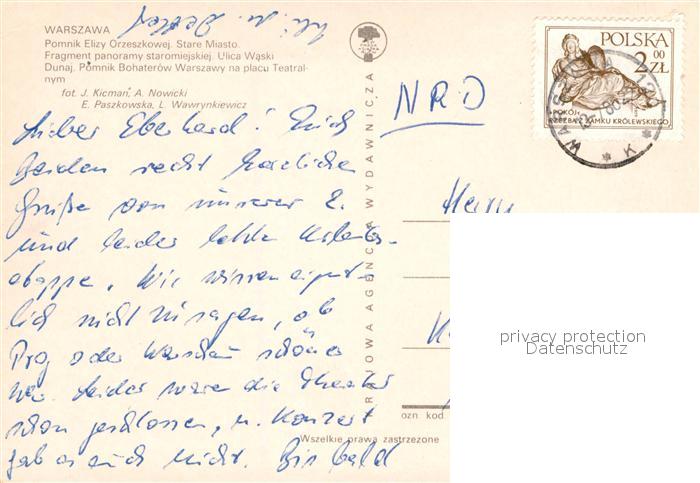 WARSZAWA
Pomnik Elizy Orzeszkowej. Stare Miasto.
Fragment panoramy staromiejskiej. Ulica Wąski
Dunaj. Pomnik Bohaterów Warszawy na placu Teatral-
nym
fot. J. Kicman, A. Nowicki
E. Paszkowska, L. Wawrynkiewicz
Lieber Eberhard! Euch
beiden recht herzliche
Grüße von unserer 2.
und leider letzten Urlaubs-
etappe. Wir wissen eigent-
lich nicht zu sagen, ob
Prag oder Warschau schöner
war. Leider waren die Theater
schon geschlossen, u. Konzert
gab es auch nicht. Bis bald
KRAJOWA AGENCJA WYDAWNICZA
POLSKA
2 00 ZŁ
POKÓJ-
RZEŹBA Z ZAMKU KRÓLEWSKIEGO
NRD
Herrn
privacy protection
Datenschutz
ozn kod
Wszelkie prawa zastrzeżone